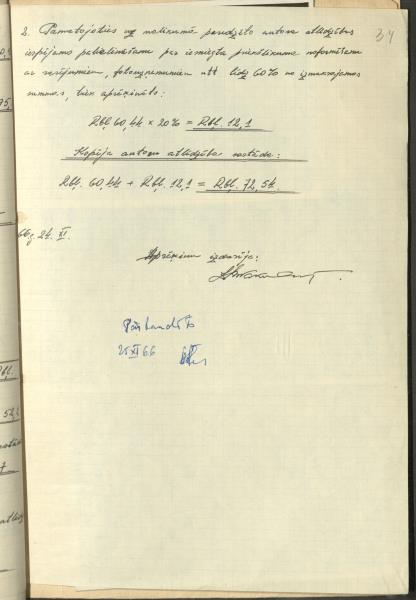 34
2. Pamatojoties uz nolikumā paredzēto autoru atlīdzības
iespējamo palielināšanu par iesniegto priekšlikumu noformēšanu
ar rasējumiem, fotouzņēmumiem utt līdz 60% no izmaksājamās
summas, tiek aprēķināts:
Rbļ 60,44 x 20% = Rbļ. 12,1
Kopēja autoru atlīdzība sastāda:
Rbļ. 60,44 + Rbļ. 12,1 = Rbļ. 72,54
66.g. 24. XI.
Aprēķinu izdarīja:
Pārbaudīts
25 XI 66